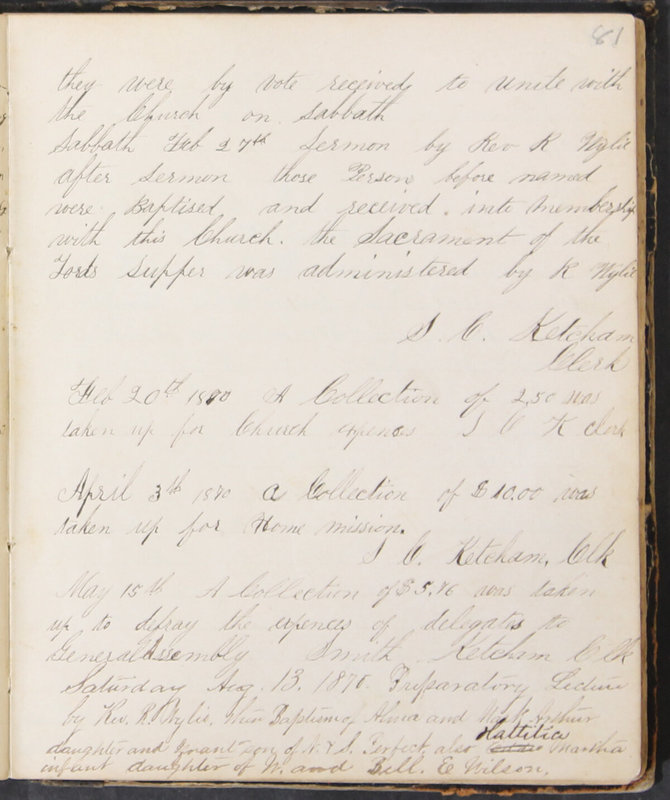 81
they were by vote received to unite with
the Church on Sabbath
Sabbath Feb 27th Sermon by Rev R Wylie
after Sermon those Persons before named
were Baptised and received into membership
with this Church. the Sacrament of the
Lords Supper was administered by R Wylie
S. C. Ketcham
Clerk
Feb 20th 1870 A Collection of 2,50 was
taken up for Church expences S C K clerk
April 3th 1870 a Collection of $10.00 was
taken up for Home mission.
S C. Ketcham, Clk
May 15th A Collection of $5,76 was taken
up to defray the expences of delegates to
General Assembly Smith Ketcham Clk
Saturday Aug. 13, 1870. Preparatory Lecture
by Rev. R. Wylie, Baptism of and Mark Arthur
Hattitia
daughter and infant son of N. & S. Perfect, also Martha
infant daughter of W. and Bell. E Wilson,